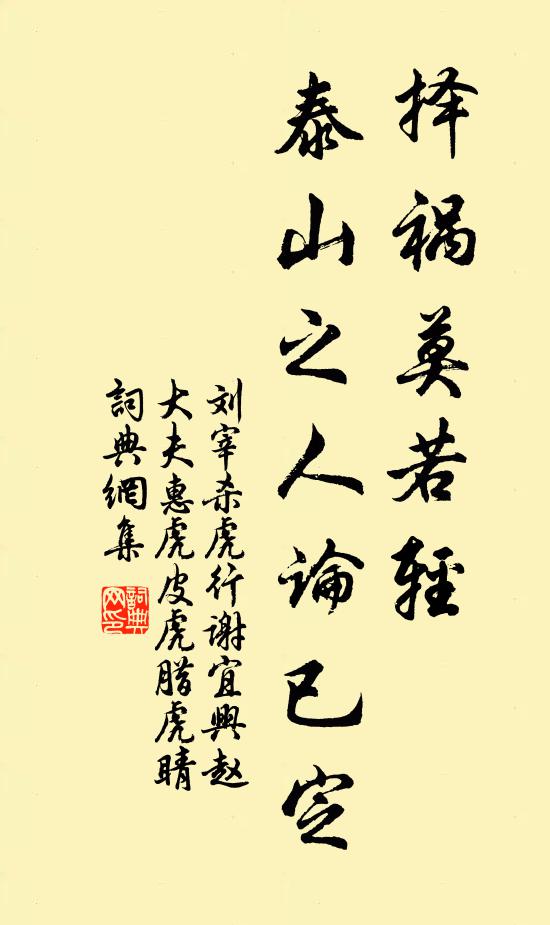 择祸莫若轻
泰山之人论已定
刘宰杀虎行谢宜興赵
大夫惠虎皮虎腊虎睛
詞典網集
詞典
网印